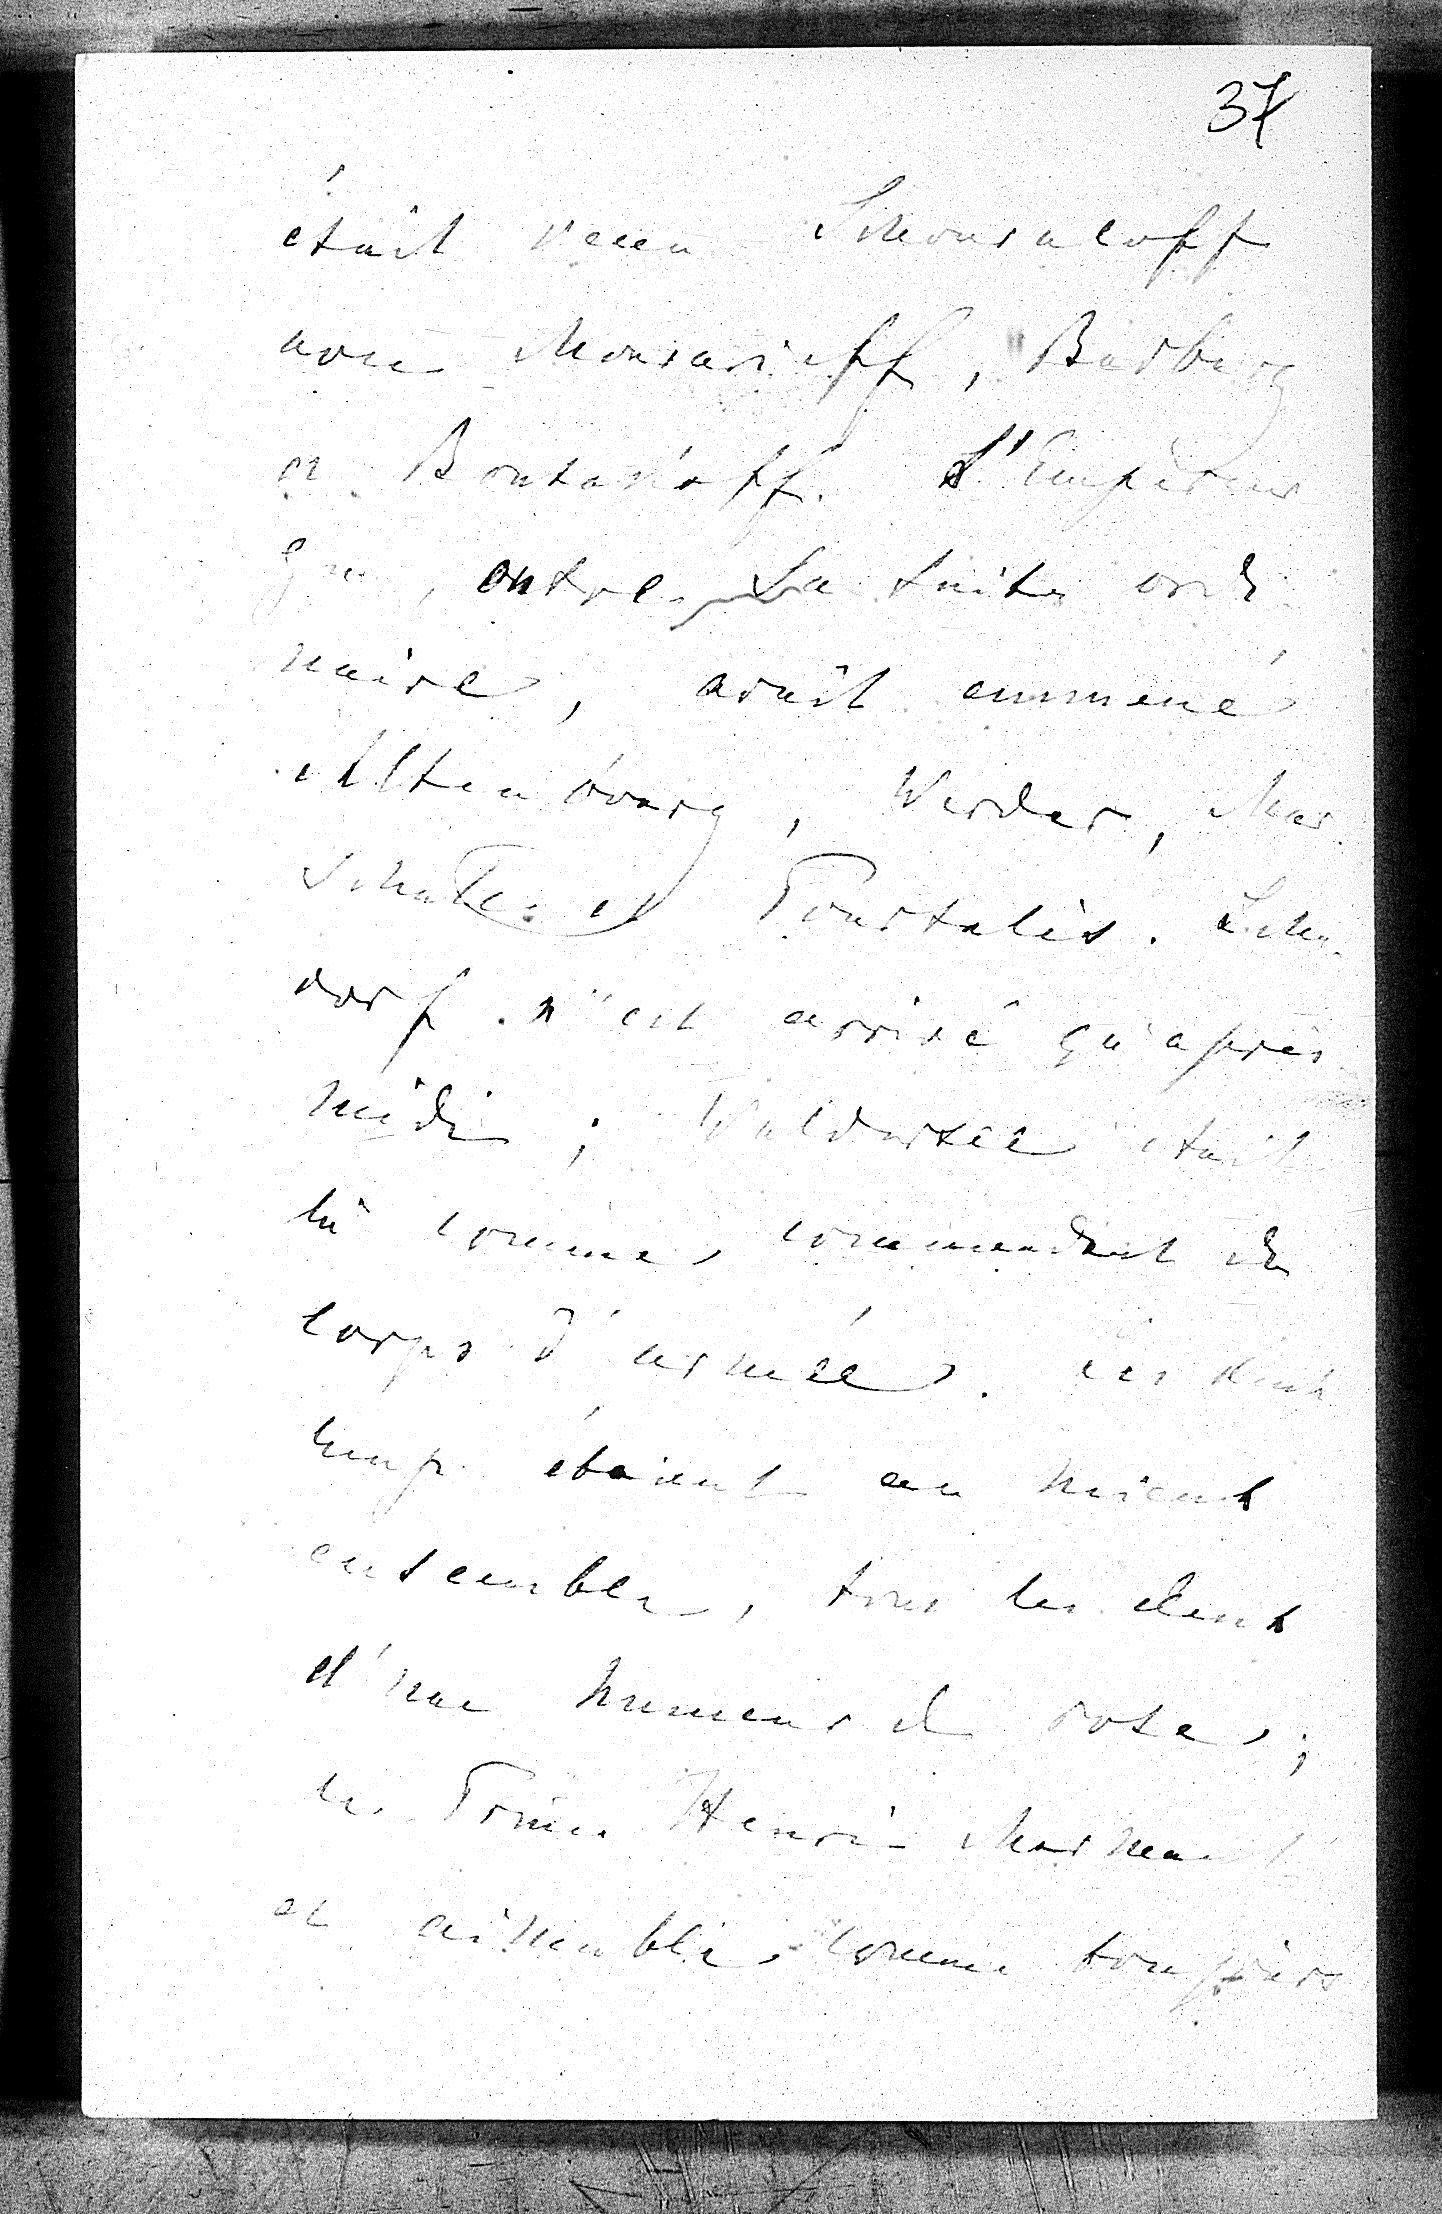 37
était venu Schouvaloff
avec Mouravieff, Budberg
et Boutakoff. L'Empereur
qui, outre sa suite ordi
naire, avait emmené
Altenbourg, Werder, Mar
schall et Pourtalès. Lehn
dorf n'est arrivé qu'après
midi; Waldersee était
là comme commandant de
corps d'armée. Les
étaient au mieux
ensemble, tous les deux
d'une humeur de rose;
le Prince Henri charmant
et aimable comme toujours